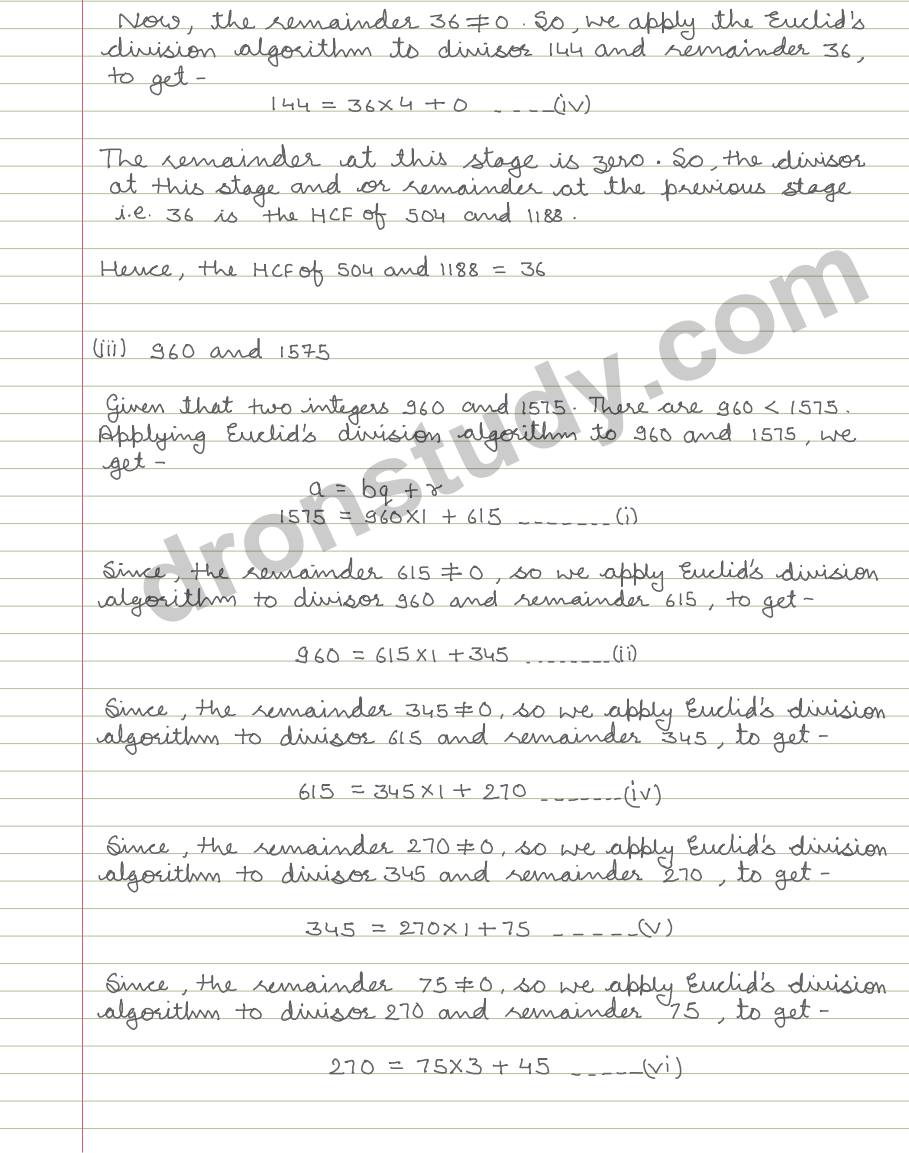 Now, the remainder 36 ≠ 0. So, we apply the Euclid's
division algorithm to divisor 144 and remainder 36,
to get -
144 = 36×4 + 0 ----(iv)
The remainder at this stage is zero. So, the divisor
at this stage and or remainder at the previous stage
i.e. 36 is the HCF of 504 and 1188.
Hence, the HCF of 504 and 1188 = 36
(iii) 960 and 1575
Given that two integers 960 and 1575. There are 960 < 1575.
Applying Euclid's division algorithm to 960 and 1575, we
get -
a = bq + r
1575 = 960×1 + 615 --------(i)
Since, the remainder 615 ≠ 0, so we apply Euclid's division
algorithm to divisor 960 and remainder 615, to get -
960 = 615×1 + 345 --------(ii)
Since, the remainder 345 ≠ 0, so we apply Euclid's division
algorithm to divisor 615 and remainder 345, to get -
615 = 345×1 + 270 -------(iv)
Since, the remainder 270 ≠ 0, so we apply Euclid's division
algorithm to divisor 345 and remainder 270, to get -
345 = 270×1 + 75 -----(v)
Since, the remainder 75 ≠ 0, so we apply Euclid's division
algorithm to divisor 270 and remainder 75, to get -
270 = 75×3 + 45 -----(vi)
dronstudy.com